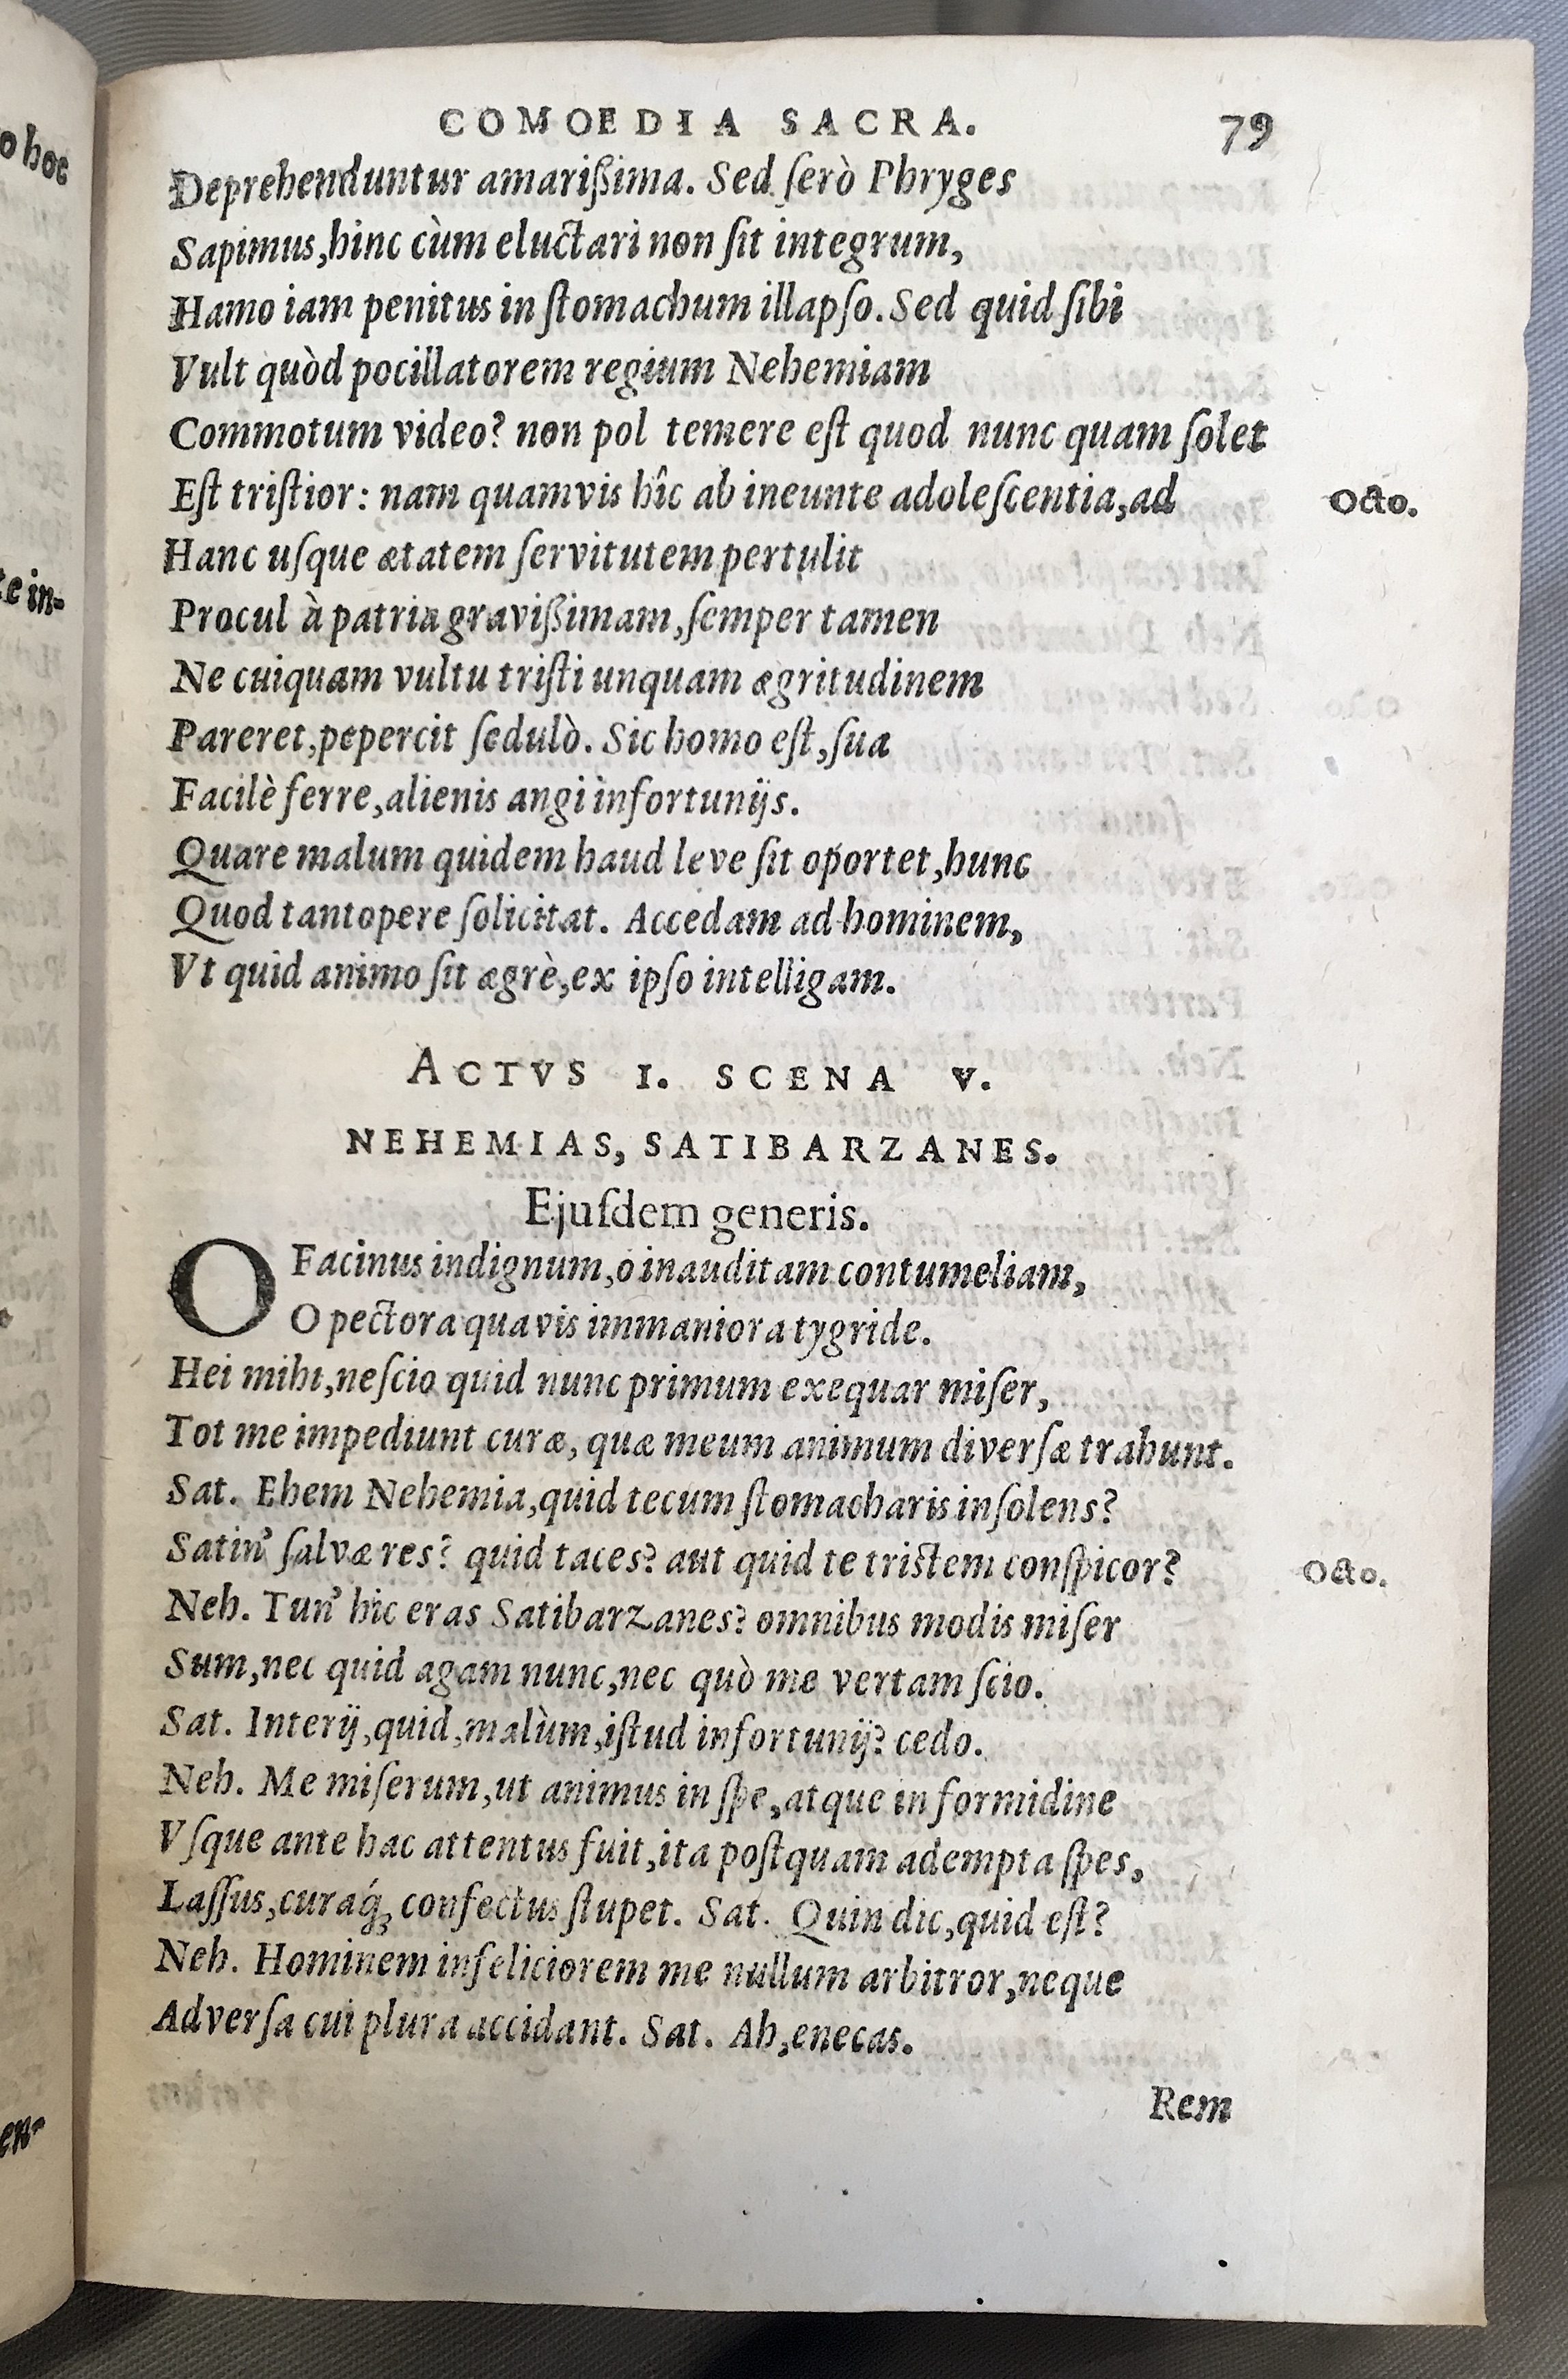 COMOEDIA SACRA. 79
Deprehenduntur amarißima. Sed ſerò Phryges
Sapimus,hinc cùm eluctari non ſit integrum,
Hamo iam penitus in ſtomachum illapſo. Sed quid ſibi
Vult quòd pocillatorem regium Nehemiam
Commotum video? non pol temere eſt quod nunc quam ſolet
Eſt triſtior: nam quamvis hîc ab ineunte adoleſcentia,ad Octo.
Hanc uſque ætatem ſervitutem pertulit
Procul à patria gravißimam,ſemper tamen
Ne cuiquam vultu triſti unquam ægritudinem
Pareret,pepercit ſedulò. Sic homo eſt,ſua
Facilè ferre,alienis angi infortunijs.
Quare malum quidem haud leve ſit oportet,hunc
Quod tantopere ſolicitat. Accedam ad hominem,
Vt quid animo ſit ægrè,ex ipſo intelligam.
ACTVS I. SCENA V.
NEHEMIAS, SATIBARZANES.
Ejuſdem generis.
O Facinus indignum,o inauditam contumeliam,
O pectora quavis immaniora tygride.
Hei mihi,neſcio quid nunc primum exequar miſer,
Tot me impediunt curæ, quæ meum animum diverſæ trahunt.
Sat. Ehem Nehemia,quid tecum ſtomacharis inſolens?
Satin' ſalvæ res? quid taces? aut quid te triſtem conſpicor? Octo.
Neh. Tun' hîc eras Satibarzanes? omnibus modis miſer
Sum,nec quid agam nunc,nec quò me vertam ſcio.
Sat. Interij,quid,malùm,iſtud infortunij? cedo.
Neh. Me miſerum,ut animus in ſpe,atque in formidine
Vſque ante hac attentus fuit,ita poſtquam adempta ſpes,
Laſſus,curaq́; confectus ſtupet. Sat. Quin dic,quid eſt?
Neh. Hominem infeliciorem me nullum arbitror,neque
Adverſa cui plura accidant. Sat. Ah,enecas.
Rem